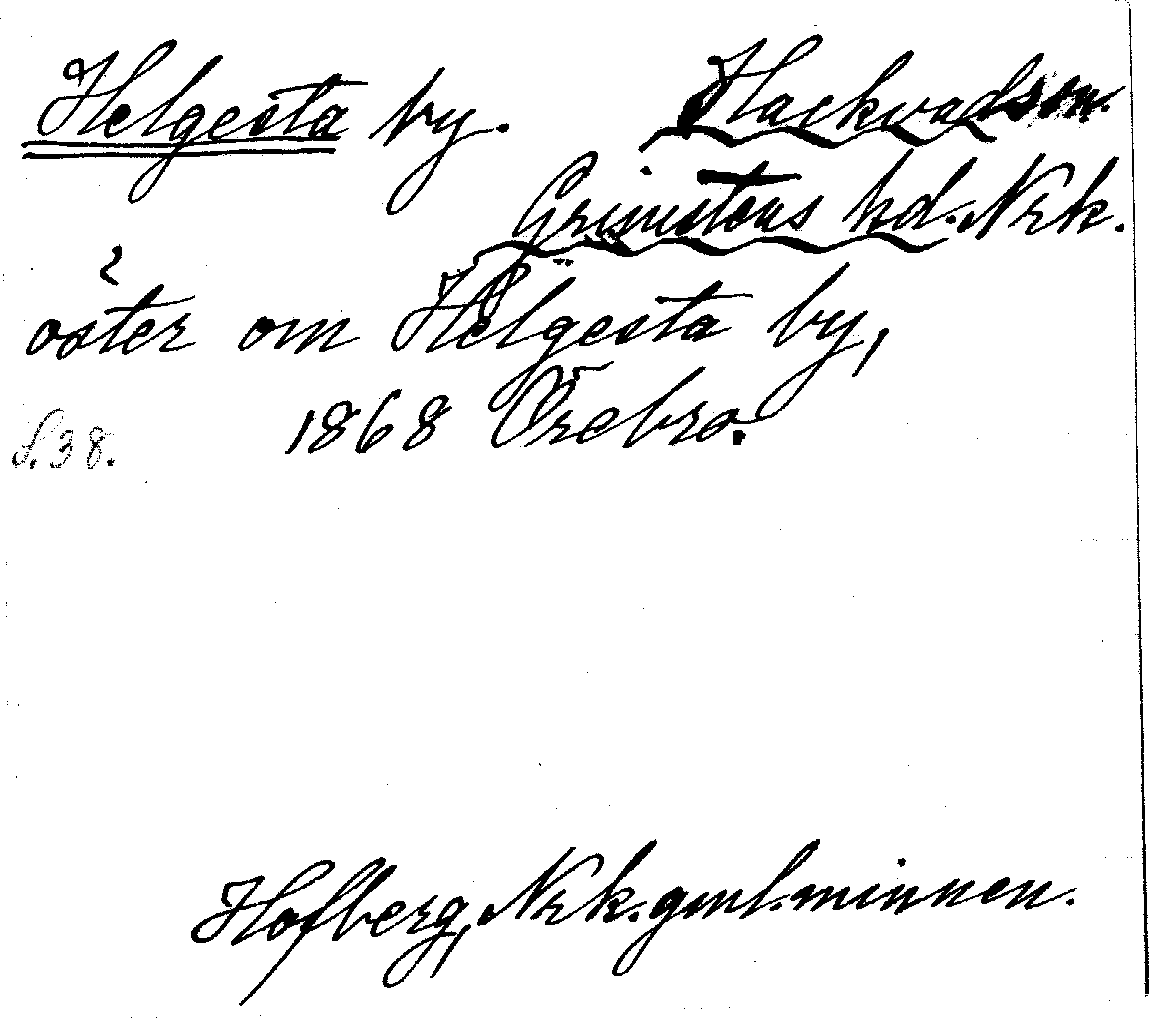 Helgesta by. Hackvads sn.
Grimstens hd. Nrk.
öster om Helgesta by,
1868 Örebro.
S. 38.
Hofberg, Nrk. gml. minnen.